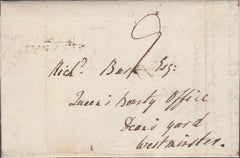 2
Richd. Burn Esq:
Queen's Bounty Office
Dean's yard
Westminster.